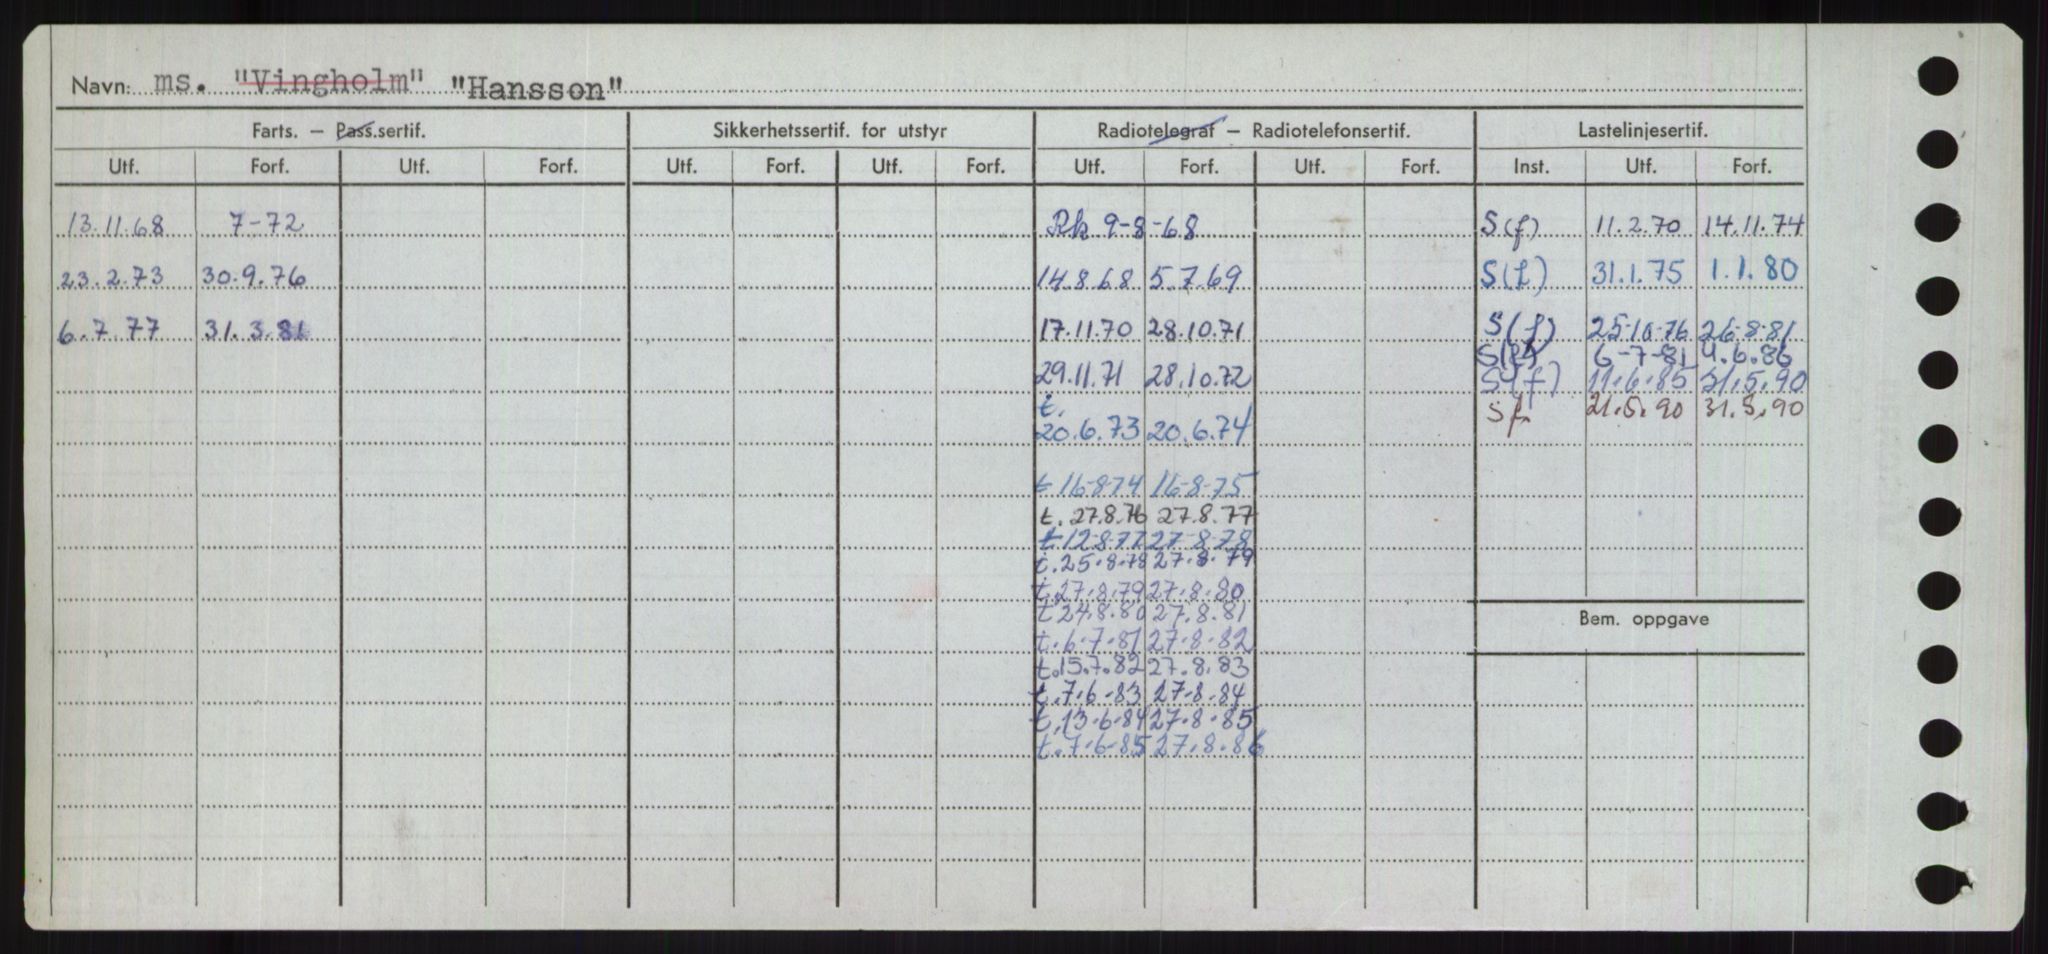 Navn: ms. "Vingholm" "Hansson"
Farts. – Pass.sertif. Sikkerhetssertif. for utstyr Radiotelegraf – Radiotelefonsertif. Lastelinjesertif.
Utf. Forf. Utf. Forf. Utf. Forf. Utf. Forf. Utf. Forf. Utf. Forf. Inst. Utf. Forf.
13.11.68 7-72 Rk 9-8-68 S(f) 11.2.70 14.11.74
23.2.73 30.9.76 14.8.68 5.7.69 S(f) 31.1.75 1.1.80
6.7.77 31.3.81 17.11.70 28.10.71 S(f) 25-10-76 26-8-81
S(f) 6-7-81 4.6.86
29.11.71 28.10.72 S(f) 11.6.85 31.5.90
t. 20.6.73 20.6.74 Sf. 21.5.90 31.5.90
t 16-8-74 16-8-75
t. 27.8.76 27.8.77
t 12-8-77 27-8-78
t. 25.8.78 27.8.79
t. 27.8.79 27.8.80
t 24.8.80 27.8.81
Bem. oppgave
t. 6.7.81 27.8.82
t. 15.7.82 27.8.83
t. 7.6-83 27-8-84
t. 13-6-84 27-8-85
t. 7-6-85 27.8.86